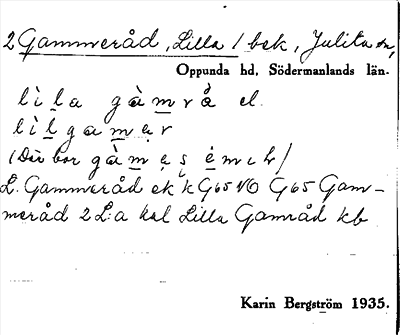 2 Gammeråd, Lilla / bek, Julita sn,
Oppunda hd, Södermanlands län.
lìla gàmrå el.
lìlgamar
(Där bor gàmes emil)
L. Gammeråd ek k G65 NO G65 Gam-
meråd 2 L:a kal Lilla Gamråd kb
Karin Bergström 1935.